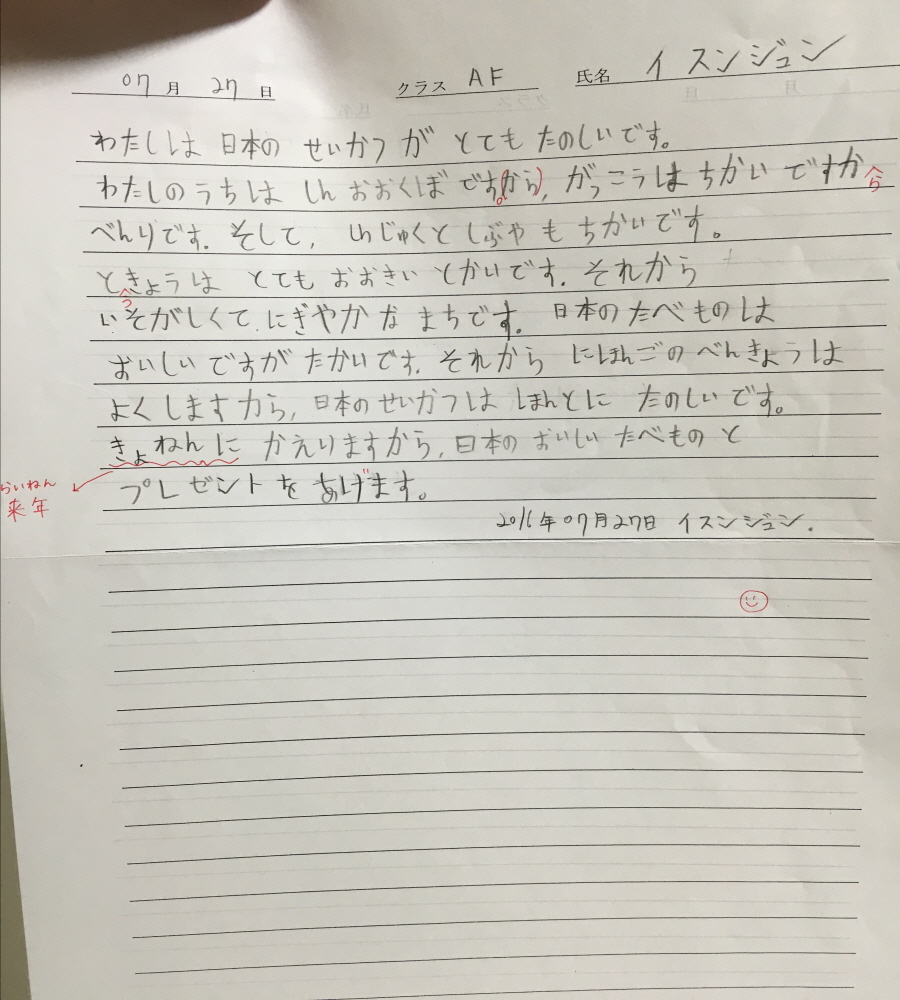 07 月 27 日 クラス AF 氏名 イ スンジュン
わたしは 日本の せいかつ が とても たのしいです。
わたしのうちは しん おおくぼ です。(から), がっこうは ちかい ですから
べんりです. そして, しんじゅくと しぶや も ちかいです。
ときょうは とても おおきい とかいです. それから
う
いそがしくて にぎやか な まちです. 日本の たべ ものは
おいしい ですが たかいです. それから にほんごの べんきょうは
よく しますから, 日本の せいかつは ほんとに たのしい です。
きょねんに かえりますから, 日本の おいしい たべもの と
らいねん
来年
プレゼントを あげます。
2016年 07月27日 イスンジュン.